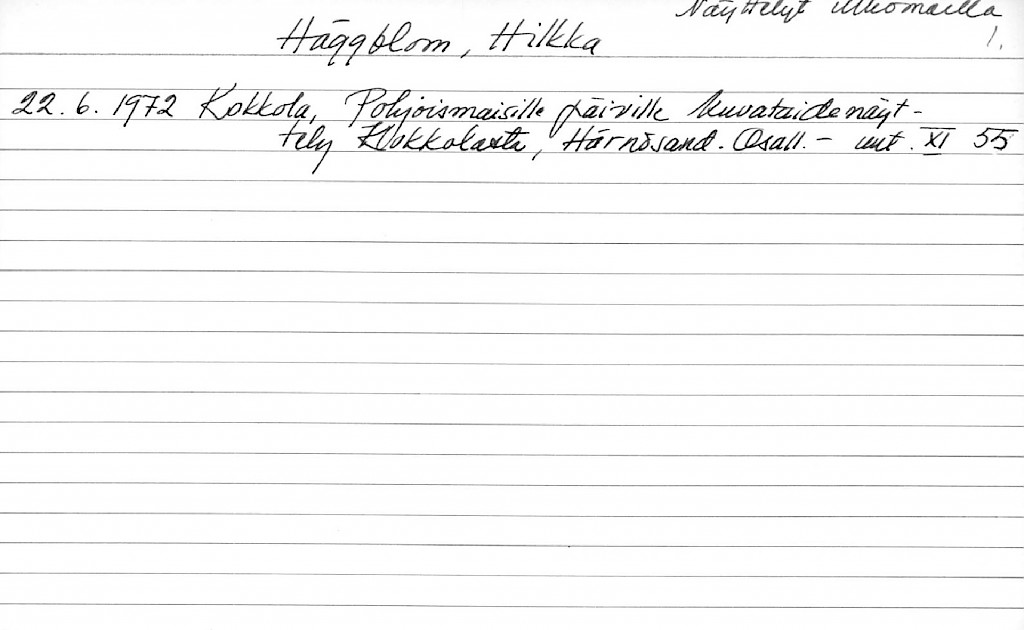 Näyttelyt ulkomailla
1.
Häggblom, Hilkka
22.6.1972 Kokkola, Pohjoismaisille päiville kuvataidenäyt-
tely Kokkolasta, Härnösand. Osall. - uut. XI 55